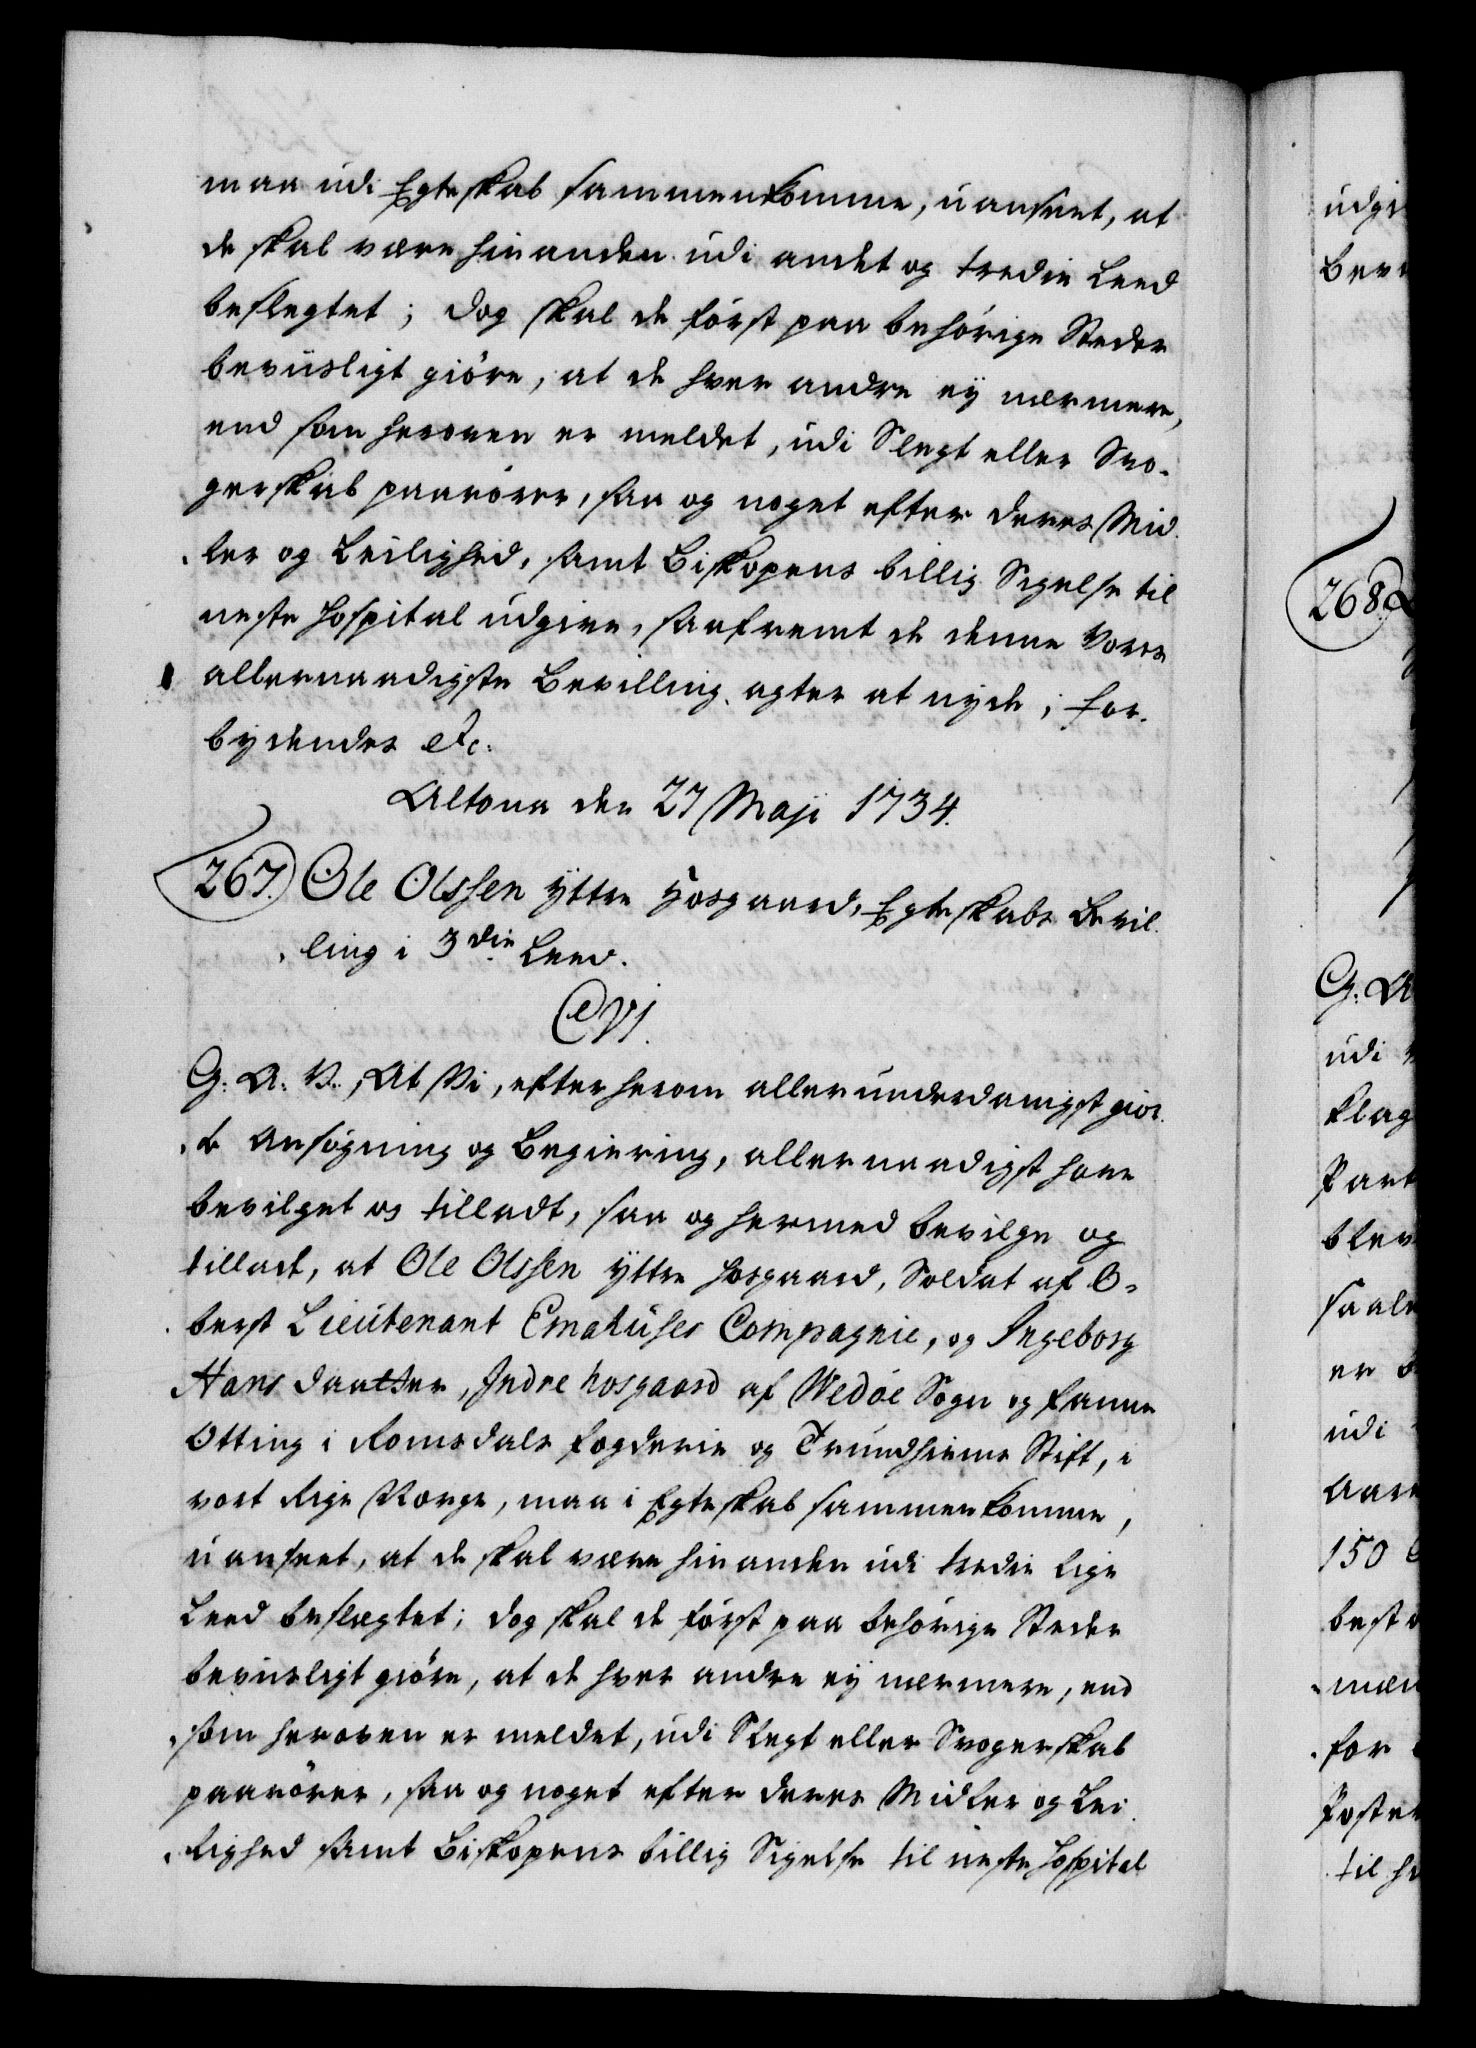 maa udi Egteskab sammenkomme, uanseet, at
de skal være hinanden udi andet og tredie Leed
beslegtet; dog skal de först paa behörige Steder
beviisligt giöre, at de hver andre ey nærmere,
end som heroven er meldet, udi Slegt eller Svo-
gerskab paarörer, saa og noget efter deres Mid-
ler og Leilighed, samt Biskopens billig Sigelse til
neste Hospital udgive, saafremt de denne Vores
allernaadigste Bevilling agter at nyde; For-
bydendes etc:
Altona den 27 Maji 1734.
267. Ole Olssen Yttre Hosgaard, Egteskabs Bevil-
ling i 3die Leed.
C VI.
G: A: V:, At Vi, efter herom allerunderdanigst gior-
te Ansögning og Begiering, allernaadigst have
bevilget og tilladt, saa og hermed bevilge og
tillade, at Ole Olssen Yttre Hosgaard, Soldat af O-
berst Lieutenant Emahuses Compagnie, og Ingeborg
Hans daatter, Indre hosgaard af Wedöe Sogn og Fanne
Otting i Romsdals Fogderie og Trundhiems Stift, i
vort Rige Norge, maa i Egteskab sammenkomme,
uanseet, at de skal være hinanden udi tredie lige
Leed beslægtet; dog skal de först paa behörige Steder
beviisligt giöre, at de hver andre ey nærmere, end
som heroven er meldet, udi Slegt eller Svogerskab
paarörer, saa og noget efter deres Midler og Lei-
lighed samt Biskopens billig Sigelse til neste Hospital
udgi
Bevi
268.
G: A
udi
klag
Part
blev
saale
er
udi
Aar
150
best
mæn
for
Poster
til